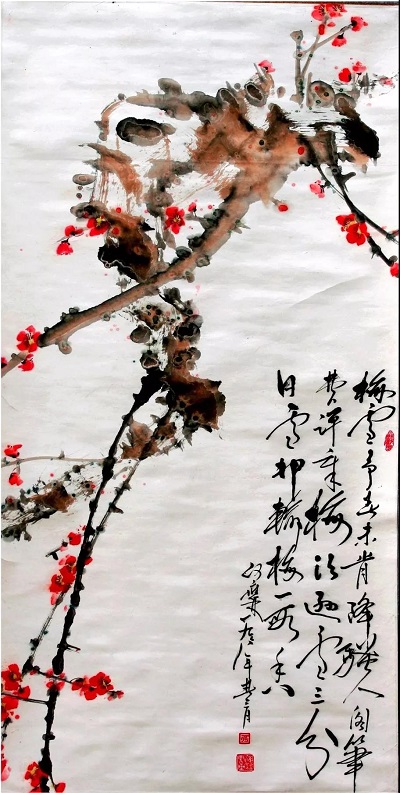 梅雪争春未肯降骚人阁筆
费评章梅须逊雪三分
白雪却输梅一段香